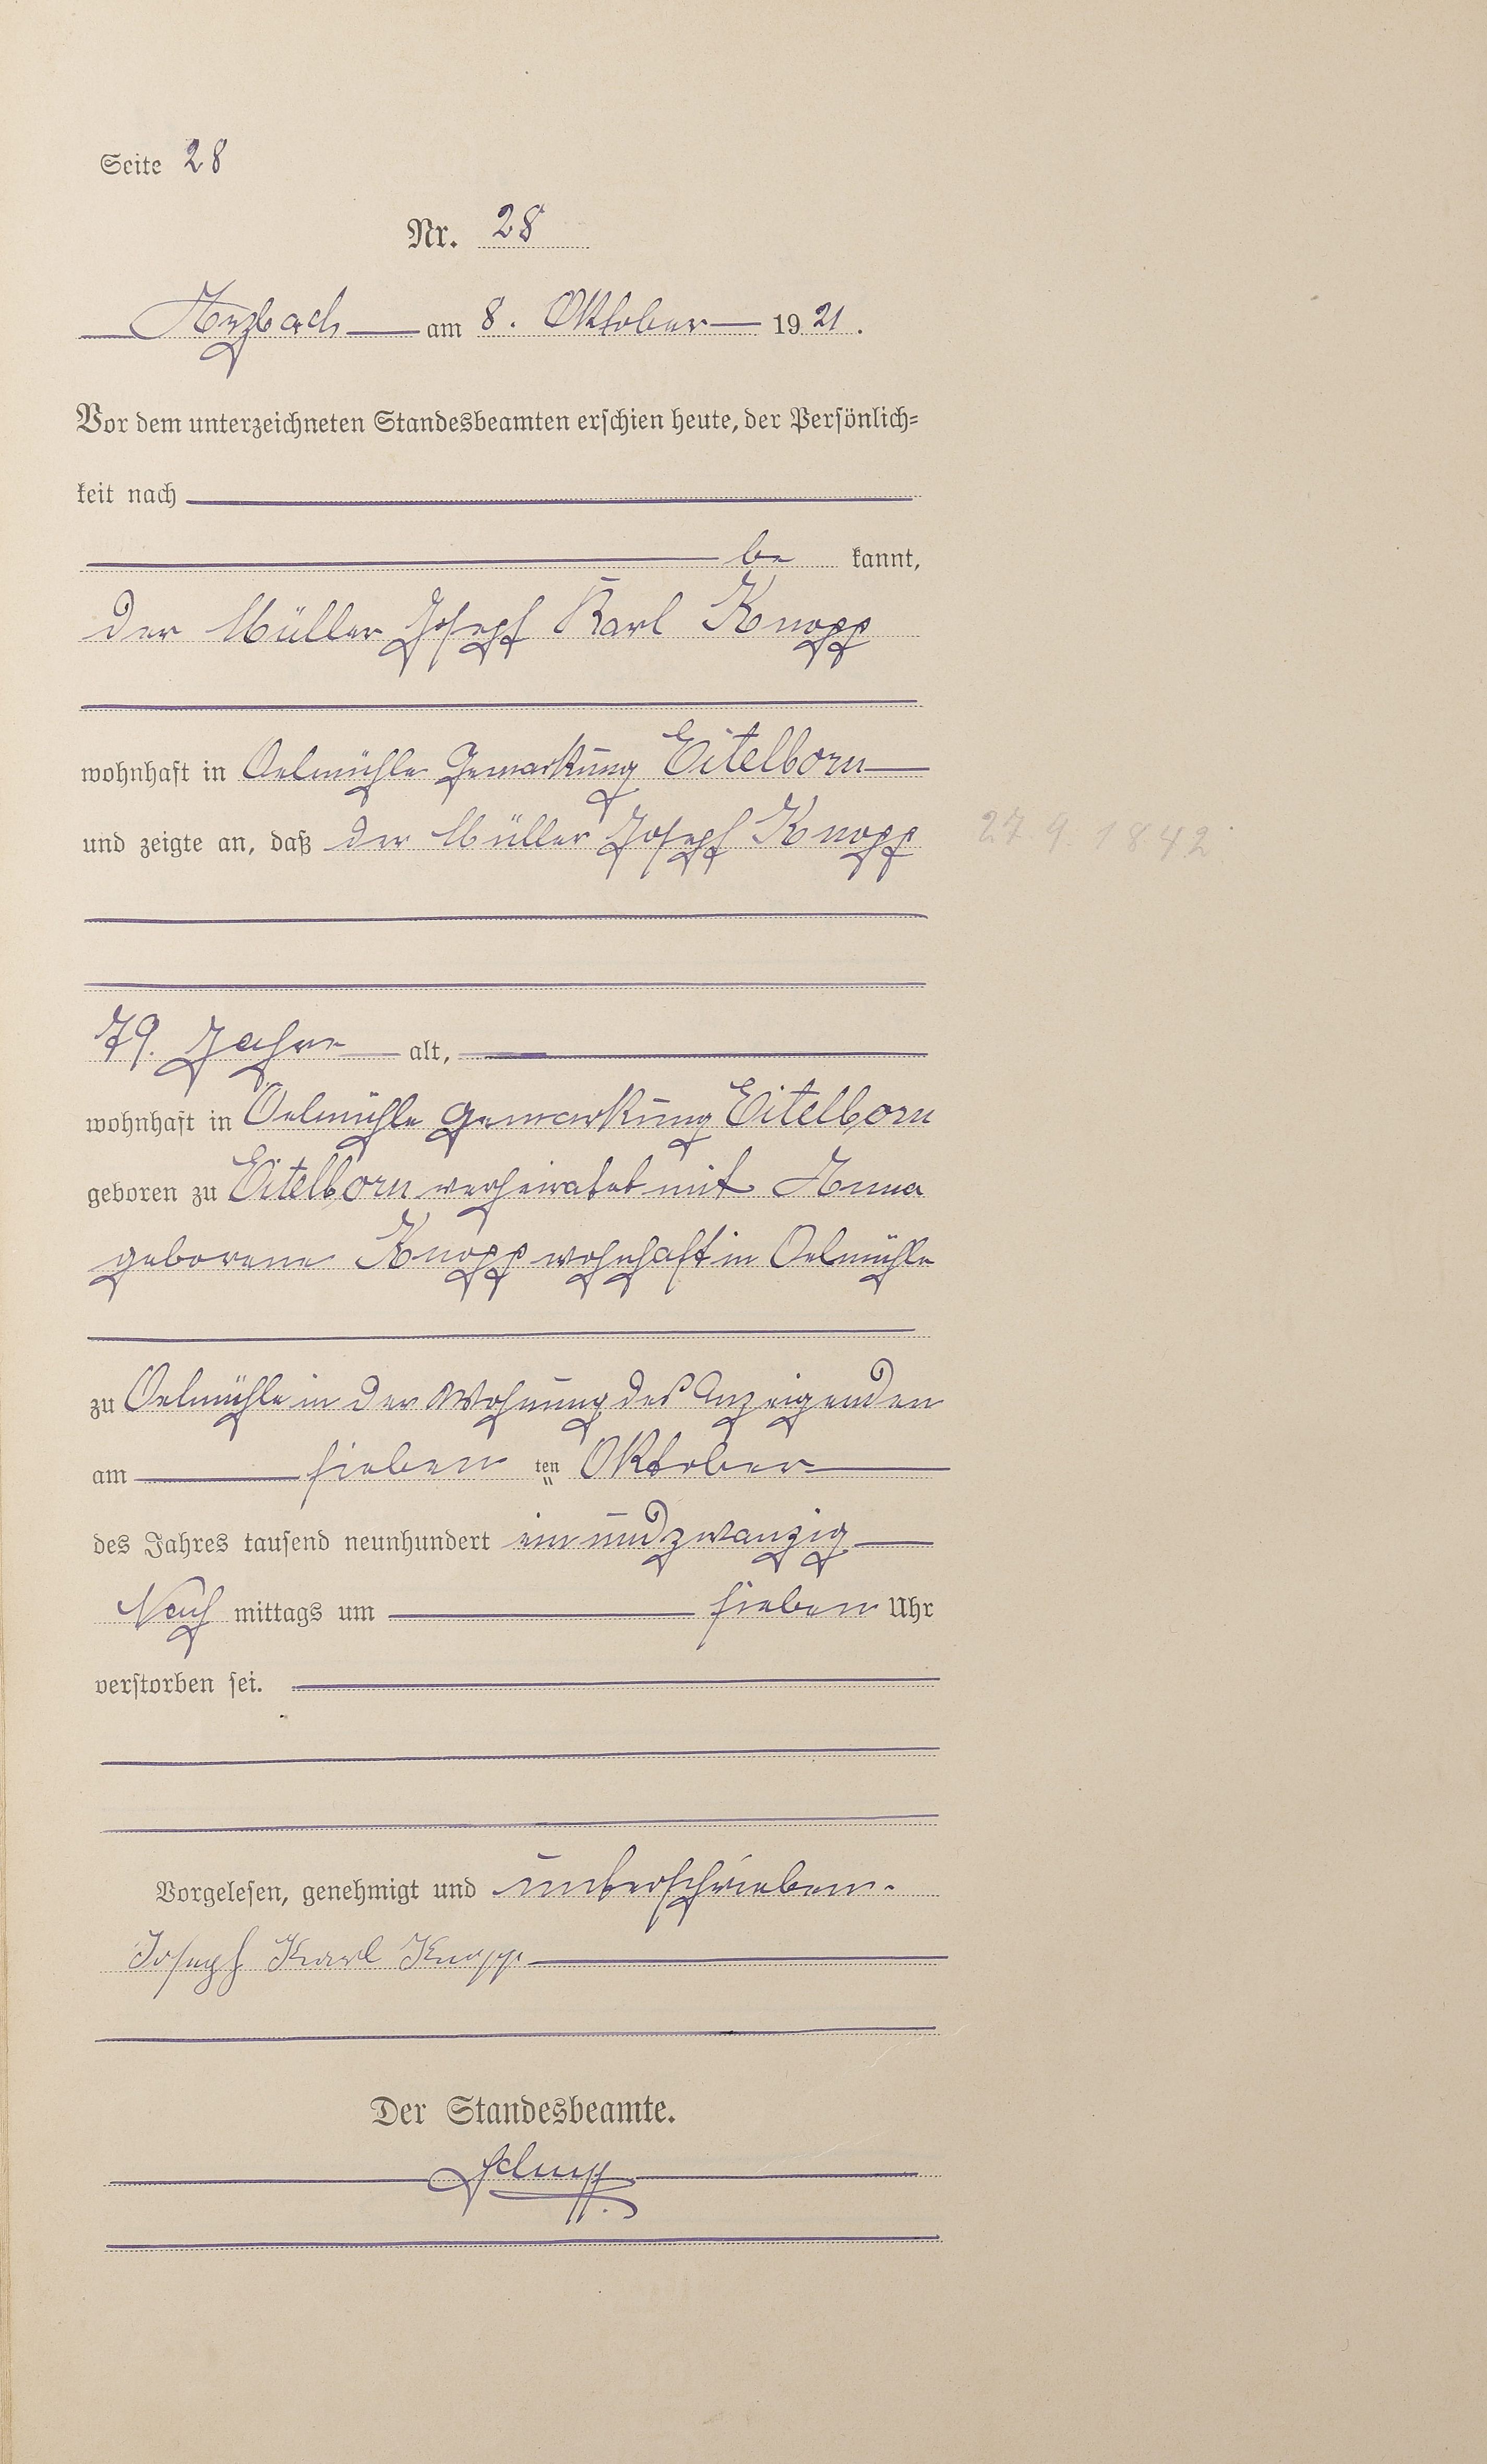 Seite 28
Nr. 28
Arzbach am 8. Oktober 1921.
Vor dem unterzeichneten Standesbeamten erschien heute, der Persönlich-
keit nach
be kannt,
der Müller Josef Karl Knopp
wohnhaft in Oelmühle Gemarkung Eitelborn
und zeigte an, daß der Müller Josef Knopp 27.9.1842.
79. Jahre alt,
wohnhaft in Oelmühle Gemarkung Eitelborn
geboren zu Eitelborn verheiratet mit Anna
geborene Knopp wohnhaft in Oelmühle
zu Oelmühle in der Wohnung des Anzeigenden
am sieben ten Oktober
des Jahres tausend neunhundert ein und zwanzig
Nach mittags um sieben Uhr
verstorben sei.
Vorgelesen, genehmigt und unterschrieben.
Joseph Karl Knopp
Der Standesbeamte.